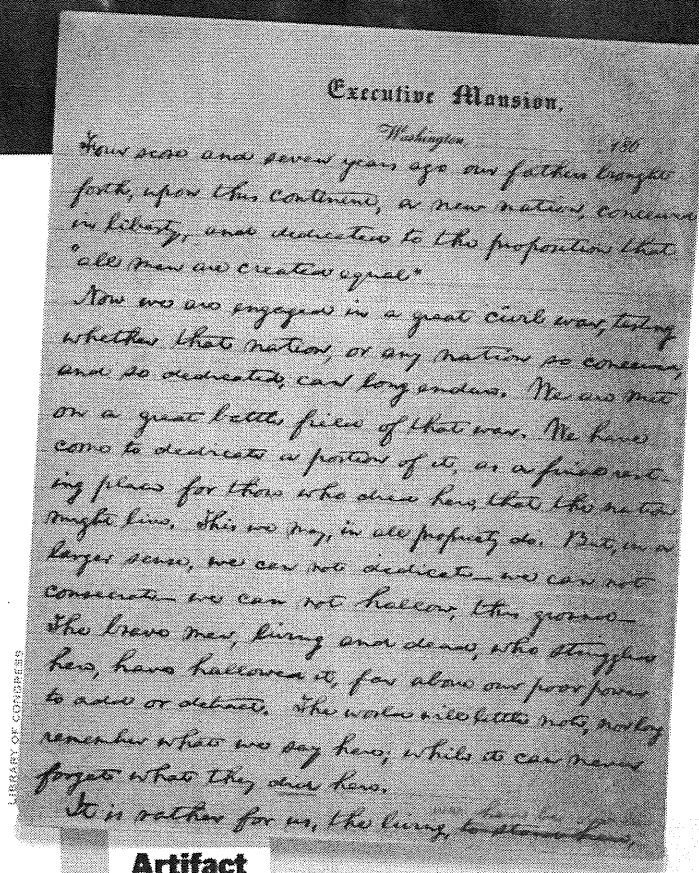 Executive Mansion,
Washington, 186
Four score and seven years ago our fathers brought
forth, upon this continent, a new nation, conceived
in liberty, and dedicated to the proposition that
"all men are created equal"
Now we are engaged in a great civil war, testing
whether that nation, or any nation so conceived,
and so dedicated, can long endure. We are met
on a great battle field of that war. We have
come to dedicate a portion of it, as a final rest-
ing place for those who died here, that the nation
might live. This we may, in all propriety do. But, in a
larger sense, we can not dedicate — we can not
consecrate — we can not hallow, this ground —
The brave men, living and dead, who struggled
here, have hallowed it, far above our poor power
to add or detract. The world will little note, nor long
remember what we say here; while it can never
forget what they did here.
It is rather for us, the living, to stand here,
LIBRARY OF CONGRESS
Artifact